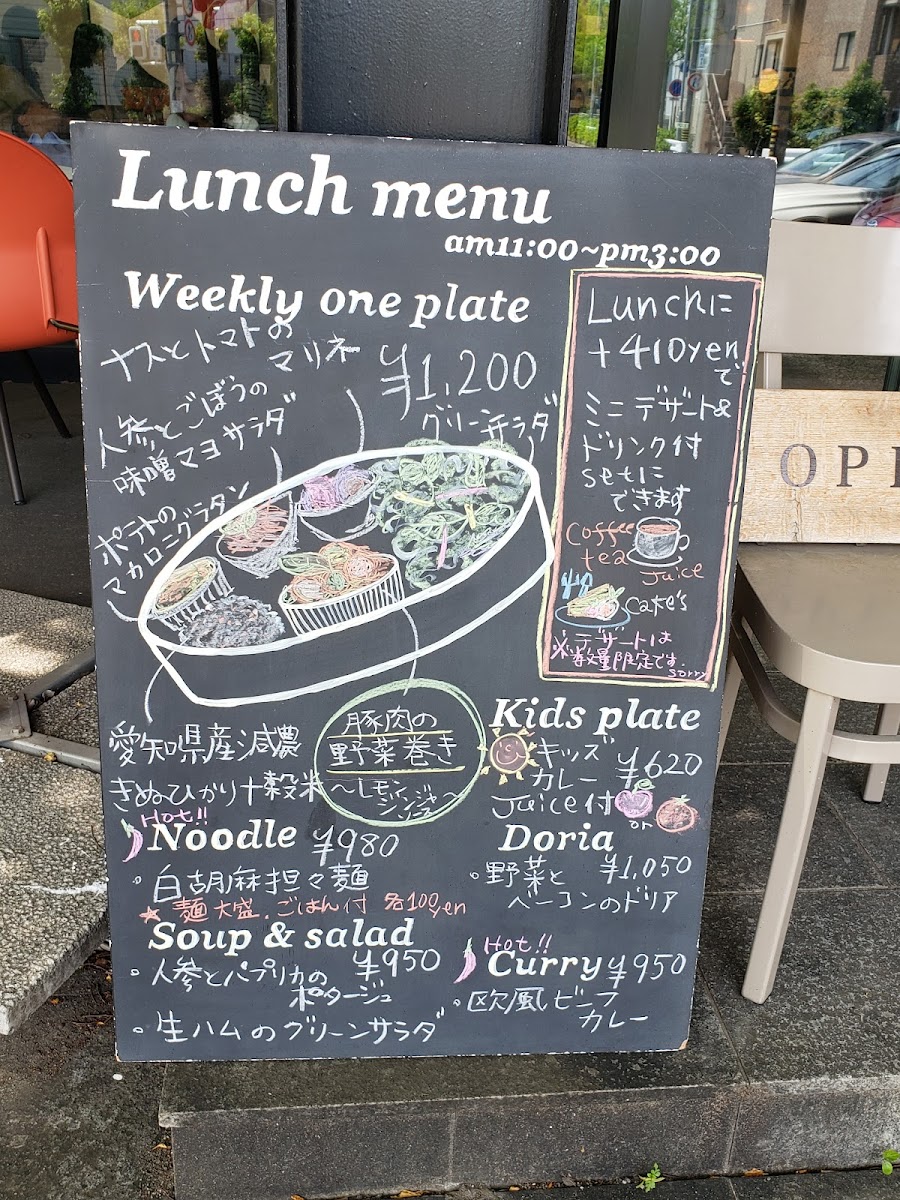 Lunch menu
am11:00~pm3:00
Weekly one plate
¥1,200
ナスとトマトの
マリネ
人参とごぼうの
味噌マヨサラダ
ポテトの
マカロニグラタン
グリーンサラダ
愛知県産減農
きぬひかり十穀米
豚肉の
野菜巻き
~レモンジンジャーソース~
Lunchに
+410yen
で
ミニデザート&
ドリンク付
setに
できます
coffee
tea
Juice
cake's
※デザートは
数量限定です。
sorry
Kids plate
キッズ
カレー ¥620
Juice付
or
Hot!!
Noodle ¥980
・白胡麻担々麺
★ 麺大盛、ごはん付 各100yen
Doria
・野菜と ¥1,050
ベーコンのドリア
Soup & salad
・人参とパプリカの ¥950
ポタージュ
・生ハムのグリーンサラダ
Hot!!
Curry ¥950
・欧風ビーフ
カレー
OPE